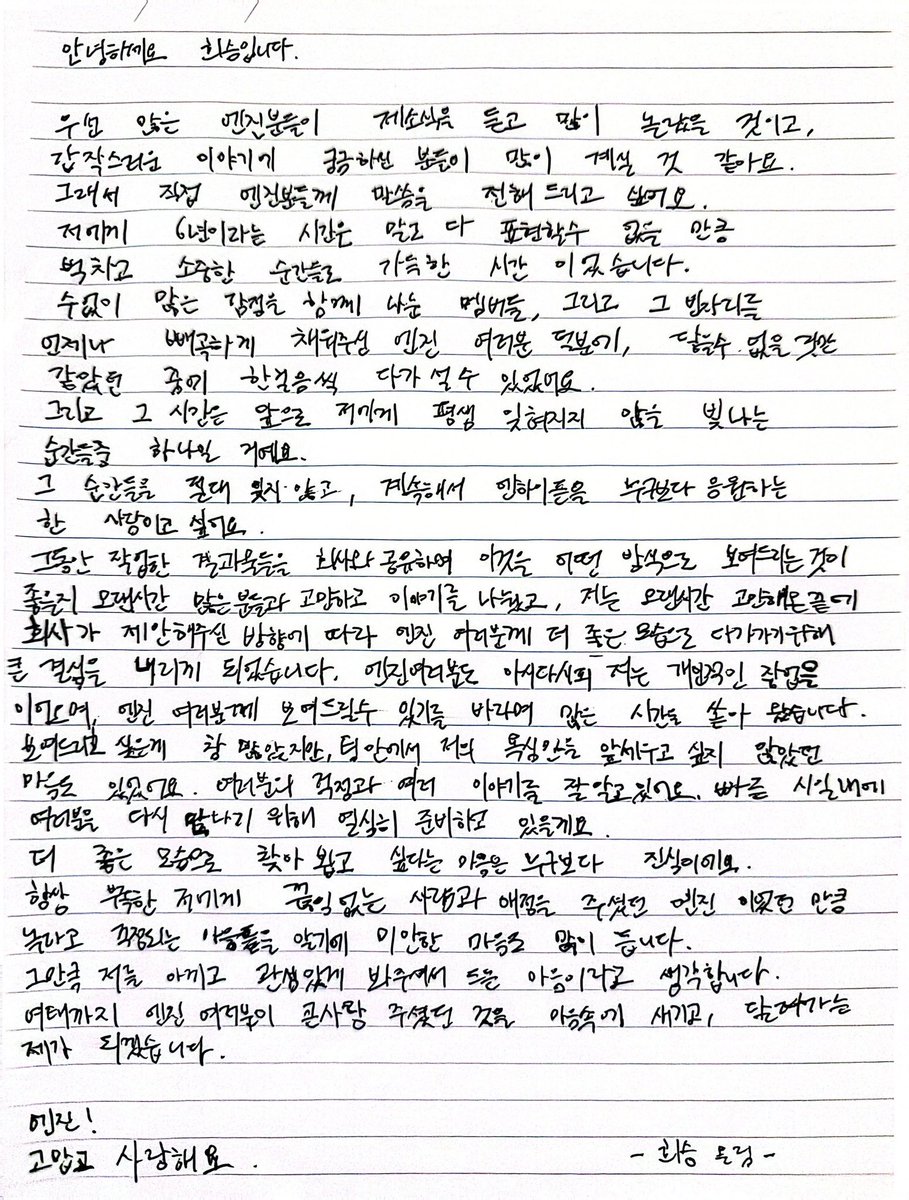 안녕하세요 희승입니다.
우선 많은 엔진분들이 제소식을 듣고 많이 놀랐을 것이고,
갑작스러운 이야기에 궁금하신 분들이 많이 계실 것 같아요.
그래서 직접 엔진분들께 말씀을 전해 드리고 싶어요.
저에게 6년이라는 시간은 말로 다 표현할수 없을 만큼
벅차고 소중한 순간들로 가득한 시간 이었습니다.
수없이 많은 감정을 함께 나눈 멤버들, 그리고 그 빈자리를
언제나 빼곡하게 채워주신 엔진 여러분 덕분에, 닿을수 없을 것만
같았던 꿈에 한걸음씩 다가 설 수 있었어요.
그리고 그 시간은 앞으로 저에게 평생 잊혀지지 않을 빛나는
순간들중 하나일 거예요.
그 순간들을 절대 잊지 않고, 계속해서 엔하이픈을 누구보다 응원하는
한 사람이고 싶어요.
그동안 작업한 결과물들을 회사와 공유하며 이것을 어떤 방식으로 보여드리는것이
좋을지 오랜시간 많은분들과 고민하고 이야기를 나눴고, 저는 오랜시간 고민해온끝에
회사가 제안해주신 방향에 따라 엔진 여러분께 더 좋은 모습으로 다가가기위해
큰 결심을 내리게 되었습니다. 엔진여러분도 아시다시피 저는 개인적인 작업을
이어오며, 엔진 여러분께 보여드릴수 있기를 바라며 많은 시간을 쏟아 왔습니다.
보여드리고 싶은게 참 많았지만, 팀 안에서 저의 욕심만을 앞세우고 싶지 않았던
마음도 있었어요. 여러분의 걱정과 여러 이야기를 잘 알고 있어요. 빠른 시일내에
여러분을 다시 만나기 위해 열심히 준비하고 있을게요.
더 좋은 모습으로 찾아 뵙고 싶다는 마음은 누구보다 진심이에요.
항상 부족한 저에게 끊임없는 사랑과 애정을 주셨던 엔진 이였던 만큼
놀라고 걱정되는 마음들을 알기에 미안한 마음도 많이 듭니다.
그만큼 저를 아끼고 관심있게 봐주셔서 드는 마음이라고 생각합니다.
여태까지 엔진 여러분이 큰사랑 주셨던 것을 마음속에 새기고, 달려가는
제가 되겠습니다.
엔진!
고맙고 사랑해요.
- 희승 드림 -